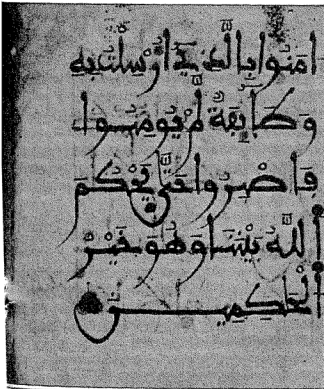 امنوا بالذى ارسلت به
وطايفة لم يومنوا
فاصبروا حتى يحكم
الله بيننا وهو خير
الحكمين